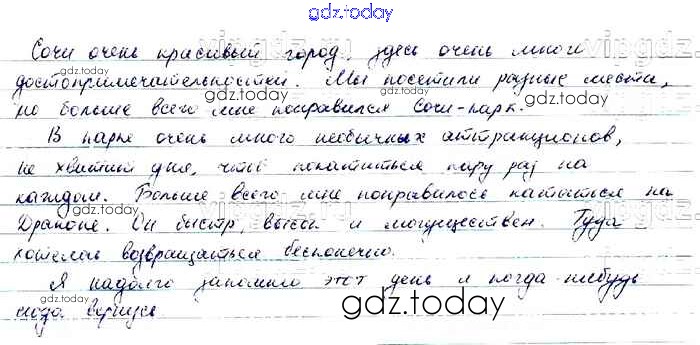 gdz.today
Сочи очень красивый город, здесь очень много
достопримечательностей. Мы посетили разные места,
но больше всего мне понравился Сочи-парк.
В парке очень много необычных аттракционов,
не хватит дня, чтоб покататься пару раз на
каждом. Больше всего мне понравилось кататься на
Драконе. Он быстр, высок и могуществен. Туда
хотелось возвращаться бесконечно.
Я надолго запомню этот день и когда-нибудь
сюда вернусь
gdz.today